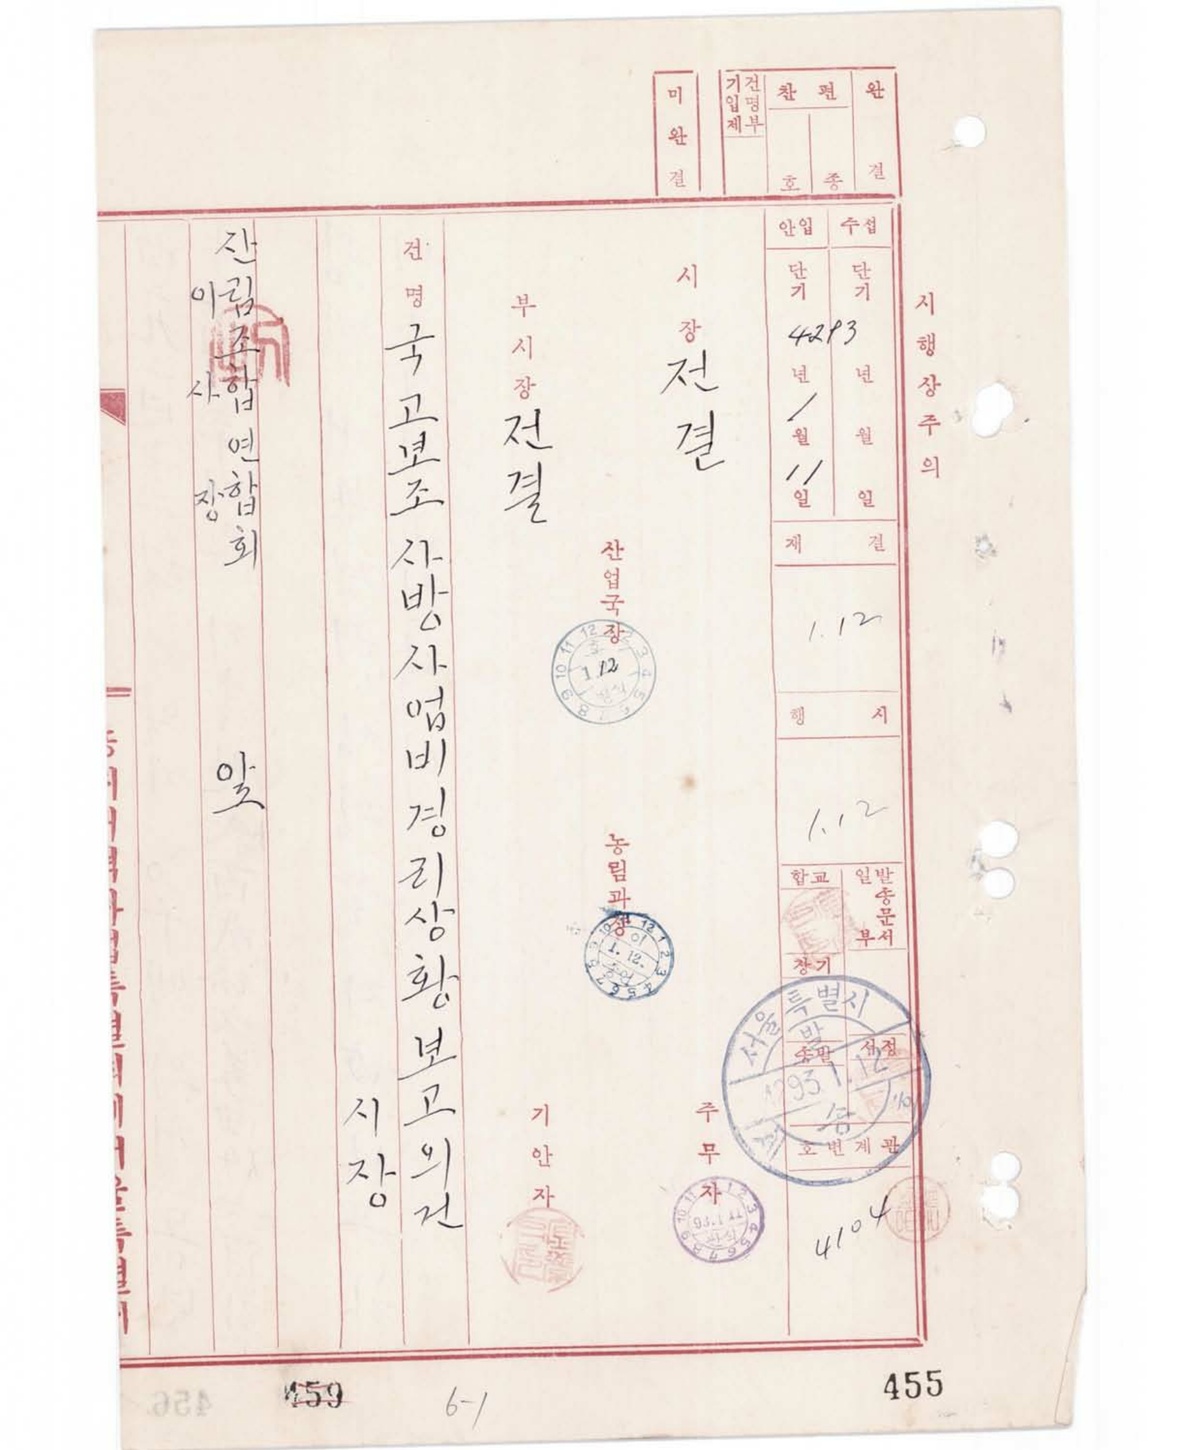 완결
편찬
종
호
건명부
기입제
미완결
시행상주의
접수
단기
년
월
일
입안
단기
4293
년
1
월
11
일
결재
1.12
시행
1.12
일반문서
송부
교합
기장
정서
발송
관계번호
4104
서울특별시
발송
4293.1.12
시장
전결
주무자
93.1.11
산업국장
1.12
농림과장
1.12.
부시장
전결
기안자
건명
국고보조 사방사업비 경리상황 보고의 건
시장
산림조합연합회
이사장
앞
455
459
456
6-1